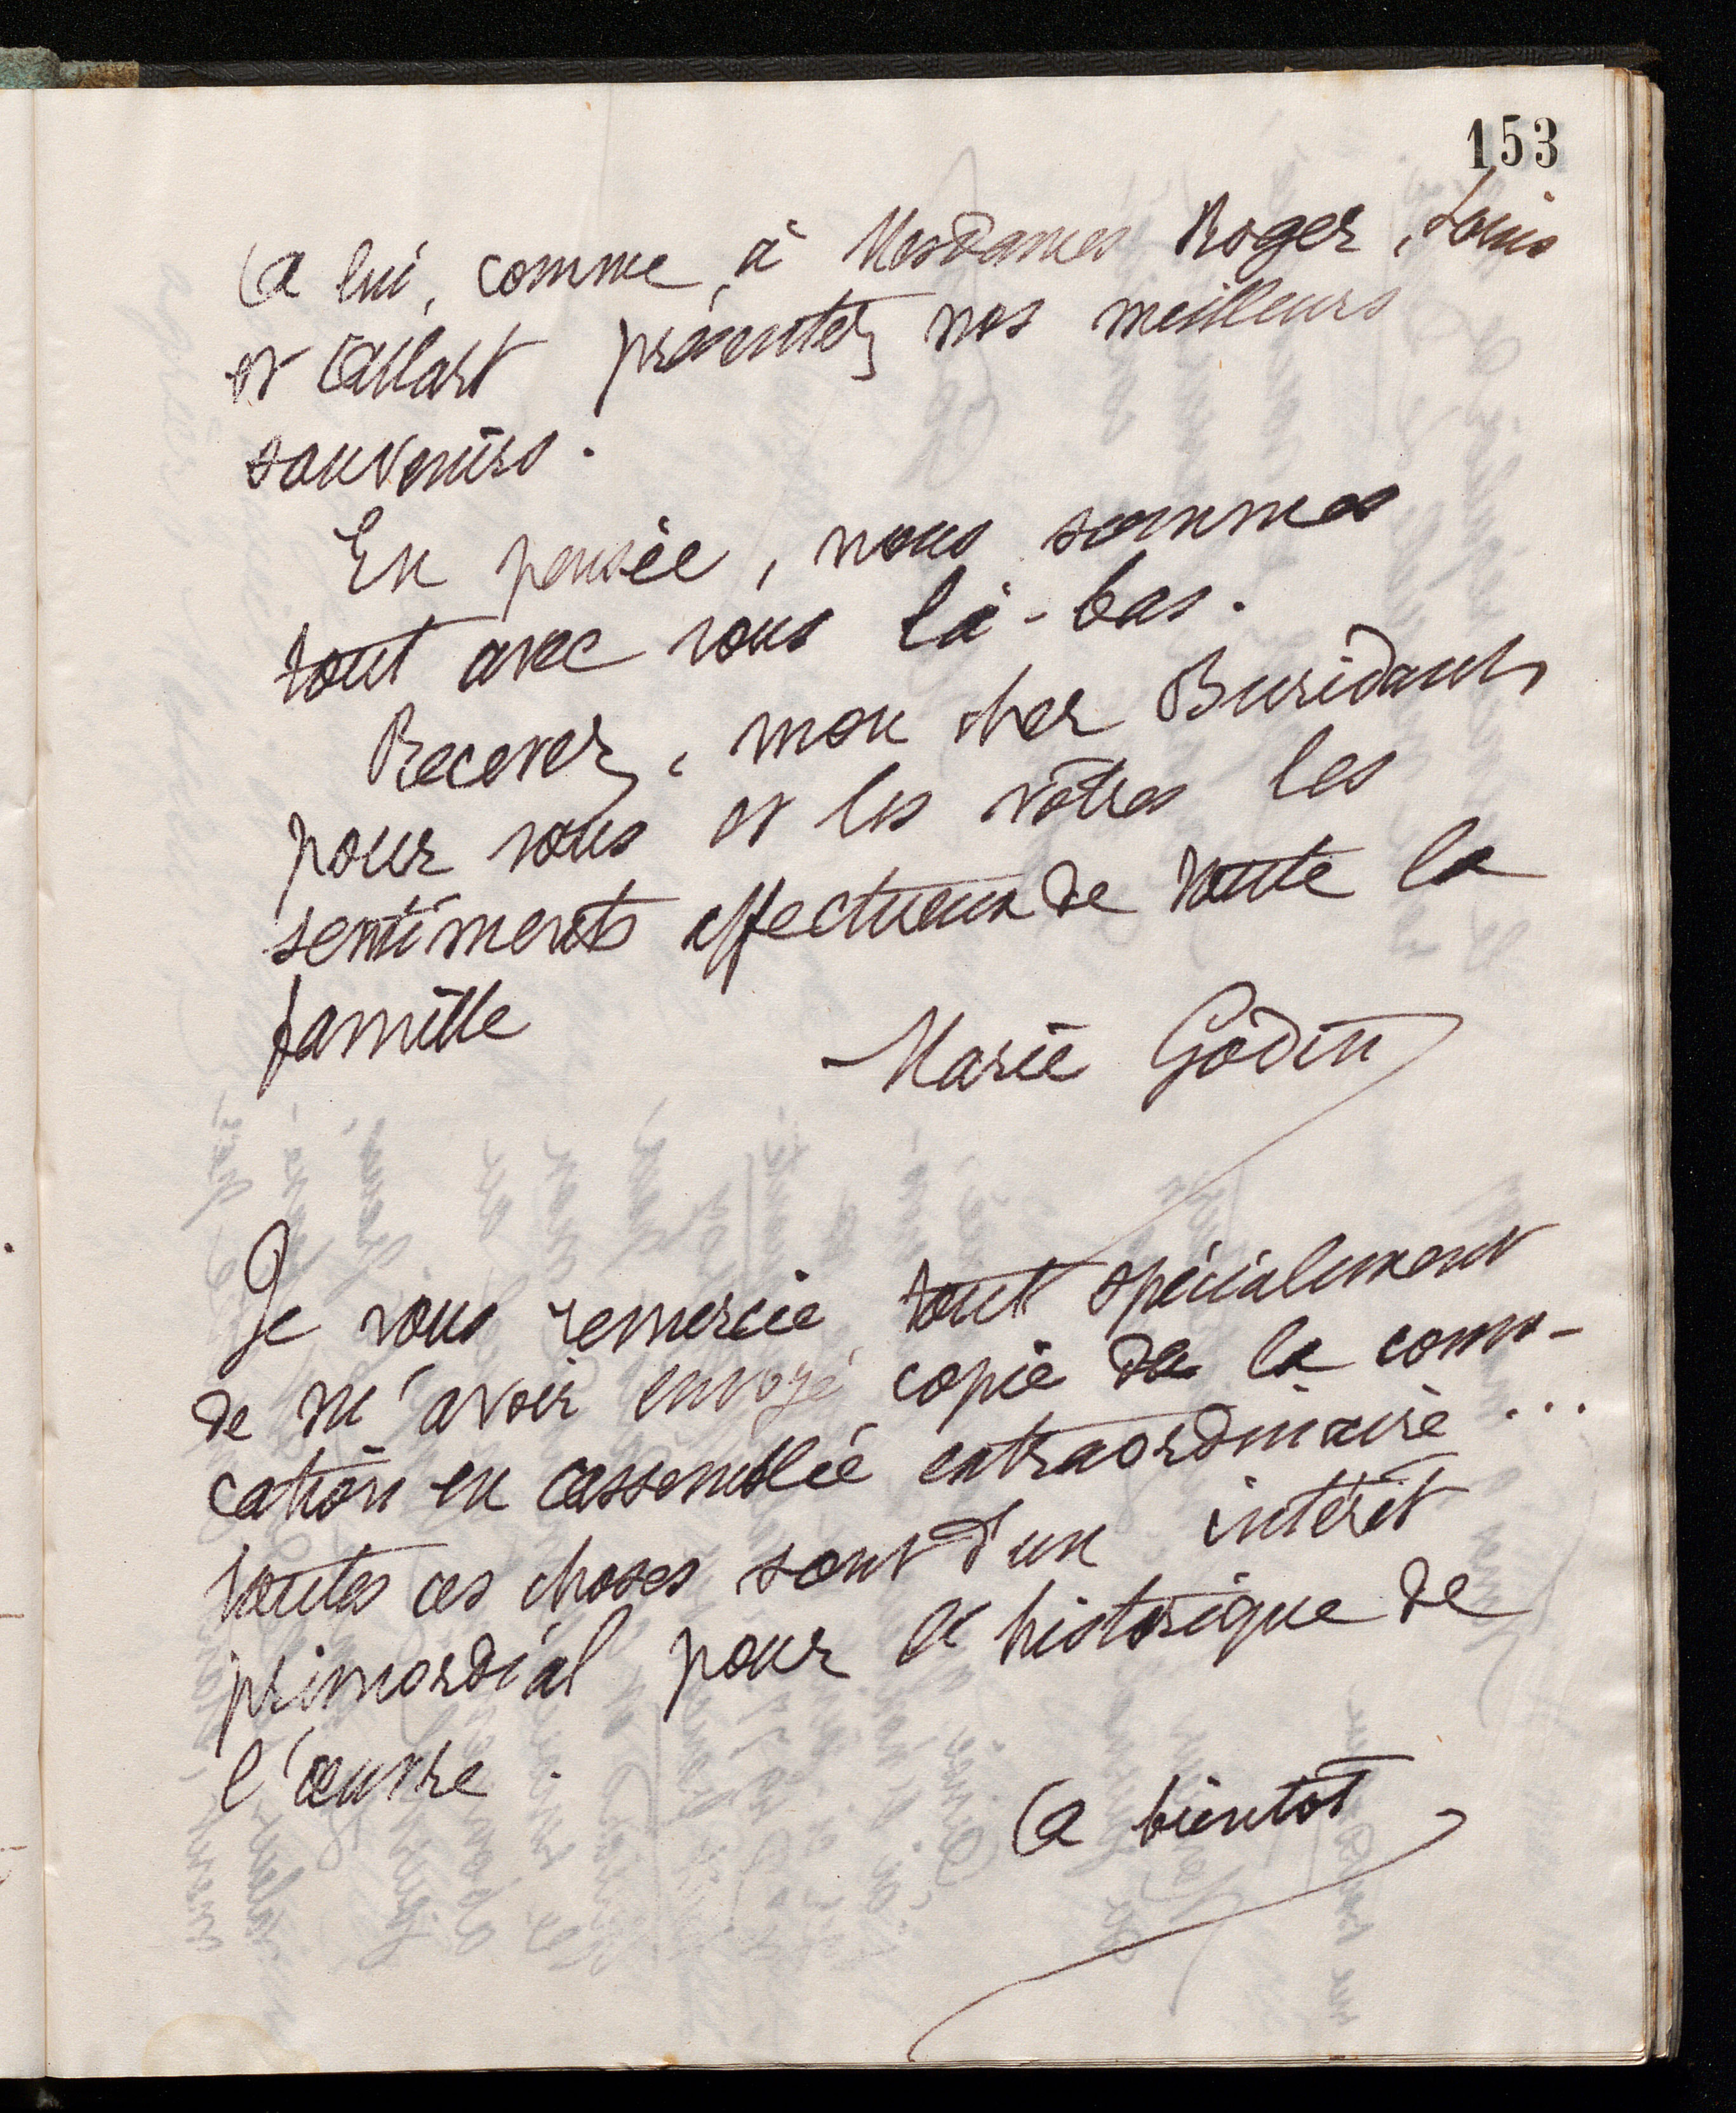 153
A lui, comme à Mesdames Roger, Louis
et Allart présentez nos meilleurs
souvenirs.
En pensée, nous sommes
tout avec vous là-bas.
Recevez, mon cher Buridant,
pour vous et les vôtres les
sentiments affectueux de toute la
famille
Marie Godin
Je vous remercie tout spécialement
de m'avoir envoyé copie de la convo-
cation en assemblée extraordinaire...
toutes ces choses sont d'un intérêt
primordial pour l'historique de
l'œuvre.
A bientôt